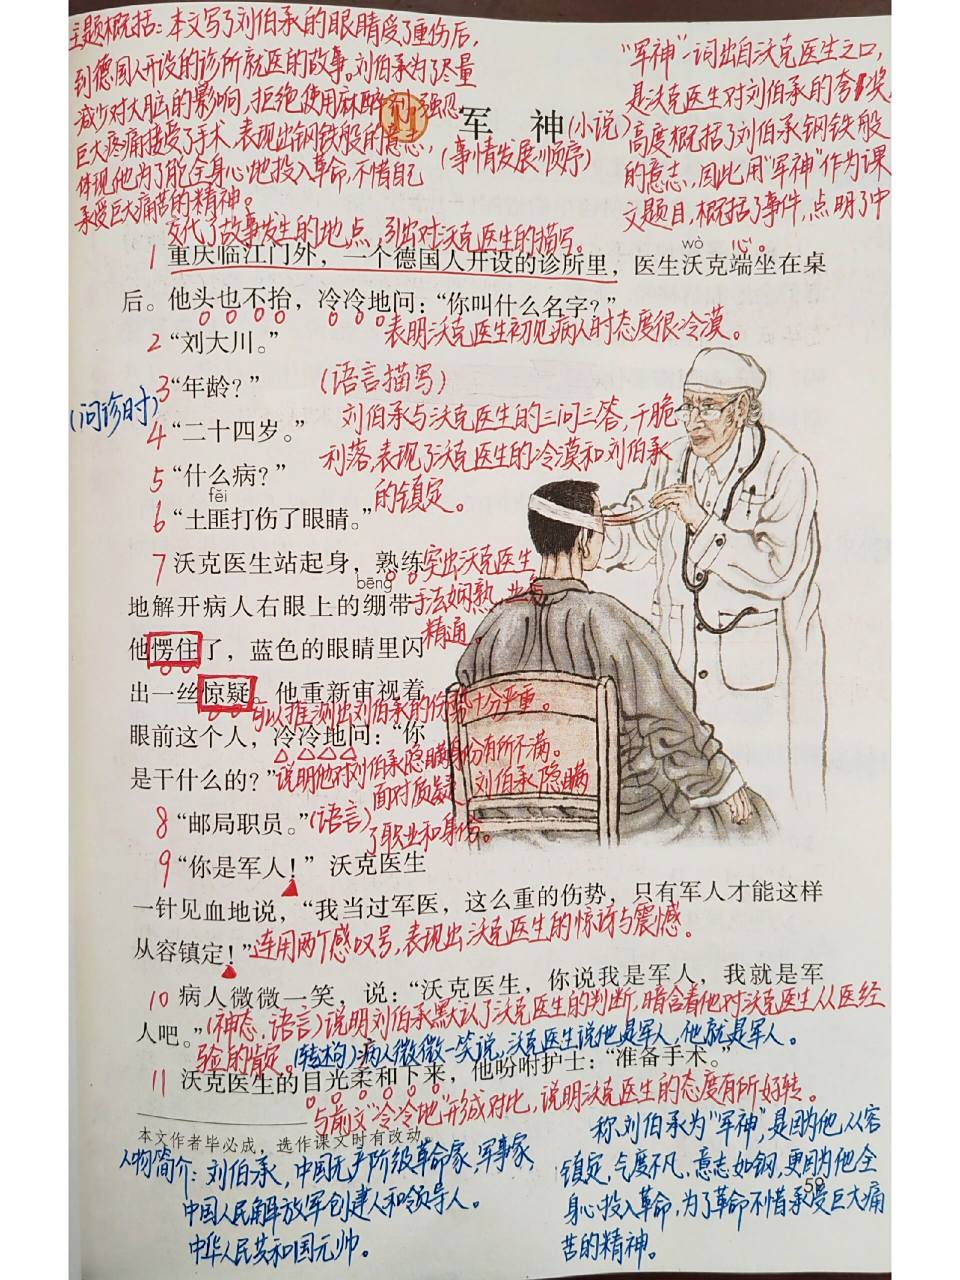 主题概括：本文写了刘伯承的眼睛受了重伤后，
到德国人开设的诊所就医的故事。刘伯承为了尽量
减少对大脑的影响，拒绝使用麻醉剂，强忍
巨大疼痛接受了手术，表现出钢铁般的意志，
体现他为了能全身心地投入革命，不惜自己
承受巨大痛苦的精神。
11 军神
(小说)
(事情发展顺序)
“军神”一词出自沃克医生之口，
是沃克医生对刘伯承的夸奖，
高度概括了刘伯承钢铁般
的意志，因此用“军神”作为课
文题目，概括了事件，点明了中
心。
交代了故事发生的地点，引出对沃克医生的描写。
wò
1 重庆临江门外，一个德国人开设的诊所里，医生沃克端坐在桌
后。他头也不抬，冷冷地问：“你叫什么名字？”
表明沃克医生初见病人时态度很冷漠。
2 “刘大川。”
3 “年龄？”
(语言描写)
(问诊时)
4 “二十四岁。”
刘伯承与沃克医生的三问三答，干脆
利落，表现了沃克医生的冷漠和刘伯承
的镇定。
5 “什么病？”
fěi
6 “土匪打伤了眼睛。”
7 沃克医生站起身，熟练
突出沃克医生
bēng
地解开病人右眼上的绷带
手法娴熟，业务
精通。
他愣住了，蓝色的眼睛里闪
出一丝惊疑。他重新审视着
可以推测出刘伯承的伤势十分严重。
眼前这个人，冷冷地问：“你
是干什么的？”
说明他对刘伯承隐瞒身份有所不满。
面对质疑，刘伯承隐瞒
了职业和身份。
8 “邮局职员。”
(语言)
9 “你是军人！” 沃克医生
一针见血地说，“我当过军医，这么重的伤势，只有军人才能这样
从容镇定！”
连用两个感叹号，表现出沃克医生的惊讶与震撼。
10 病人微微一笑，说：“沃克医生，你说我是军人，我就是军
人吧。”
(神态、语言)说明刘伯承默认了沃克医生的判断，暗含着他对沃克医生从医经
验的肯定。
(转述句)病人微微一笑说，沃克医生说他是军人，他就是军人。
11 沃克医生的目光柔和下来，他吩咐护士：“准备手术。”
与前文“冷冷地”形成对比，说明沃克医生的态度有所好转。
本文作者毕必成，选作课文时有改动。
人物简介：刘伯承，中国无产阶级革命家，军事家，
中国人民解放军创建人和领导人。
中华人民共和国元帅。
称刘伯承为“军神”，是因为他从容
镇定，气度不凡，意志如钢，更因为他全
身心投入革命，为了革命不惜承受巨大痛
苦的精神。
59